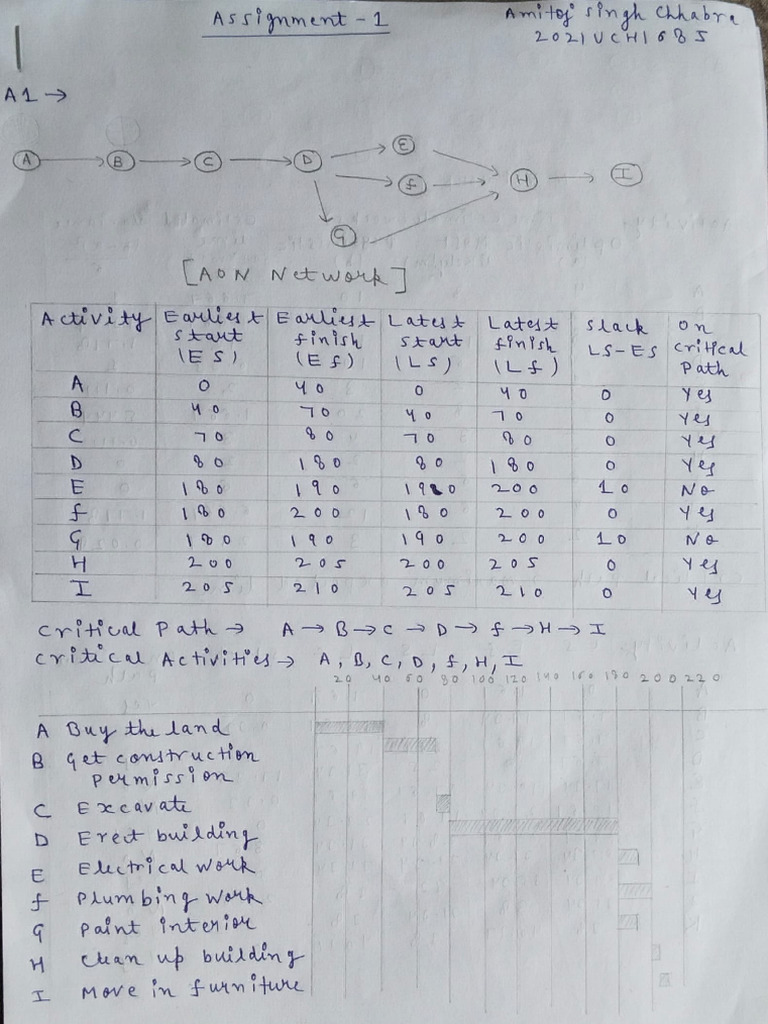 Assignment - 1
Amitoj Singh Chhabra
2021UCH1685
A1 →
A B C D E F G H I
[AON Network]
Activity Earliest start (ES) Earliest finish (EF) Latest start (LS) Latest finish (LF) Slack LS-ES On critical path
A 0 40 0 40 0 Yes
B 40 70 40 70 0 Yes
C 70 80 70 80 0 Yes
D 80 180 80 180 0 Yes
E 180 190 190 200 10 No
F 180 200 180 200 0 Yes
G 180 190 190 200 10 No
H 200 205 200 205 0 Yes
I 205 210 205 210 0 Yes
Critical Path → A → B → C → D → F → H → I
Critical Activities → A, B, C, D, F, H, I
20 40 60 80 100 120 140 160 180 200 220
A Buy the land
B Get construction
permission
C Excavate
D Erect building
E Electrical work
F Plumbing work
G Paint interior
H Clean up building
I Move in furniture